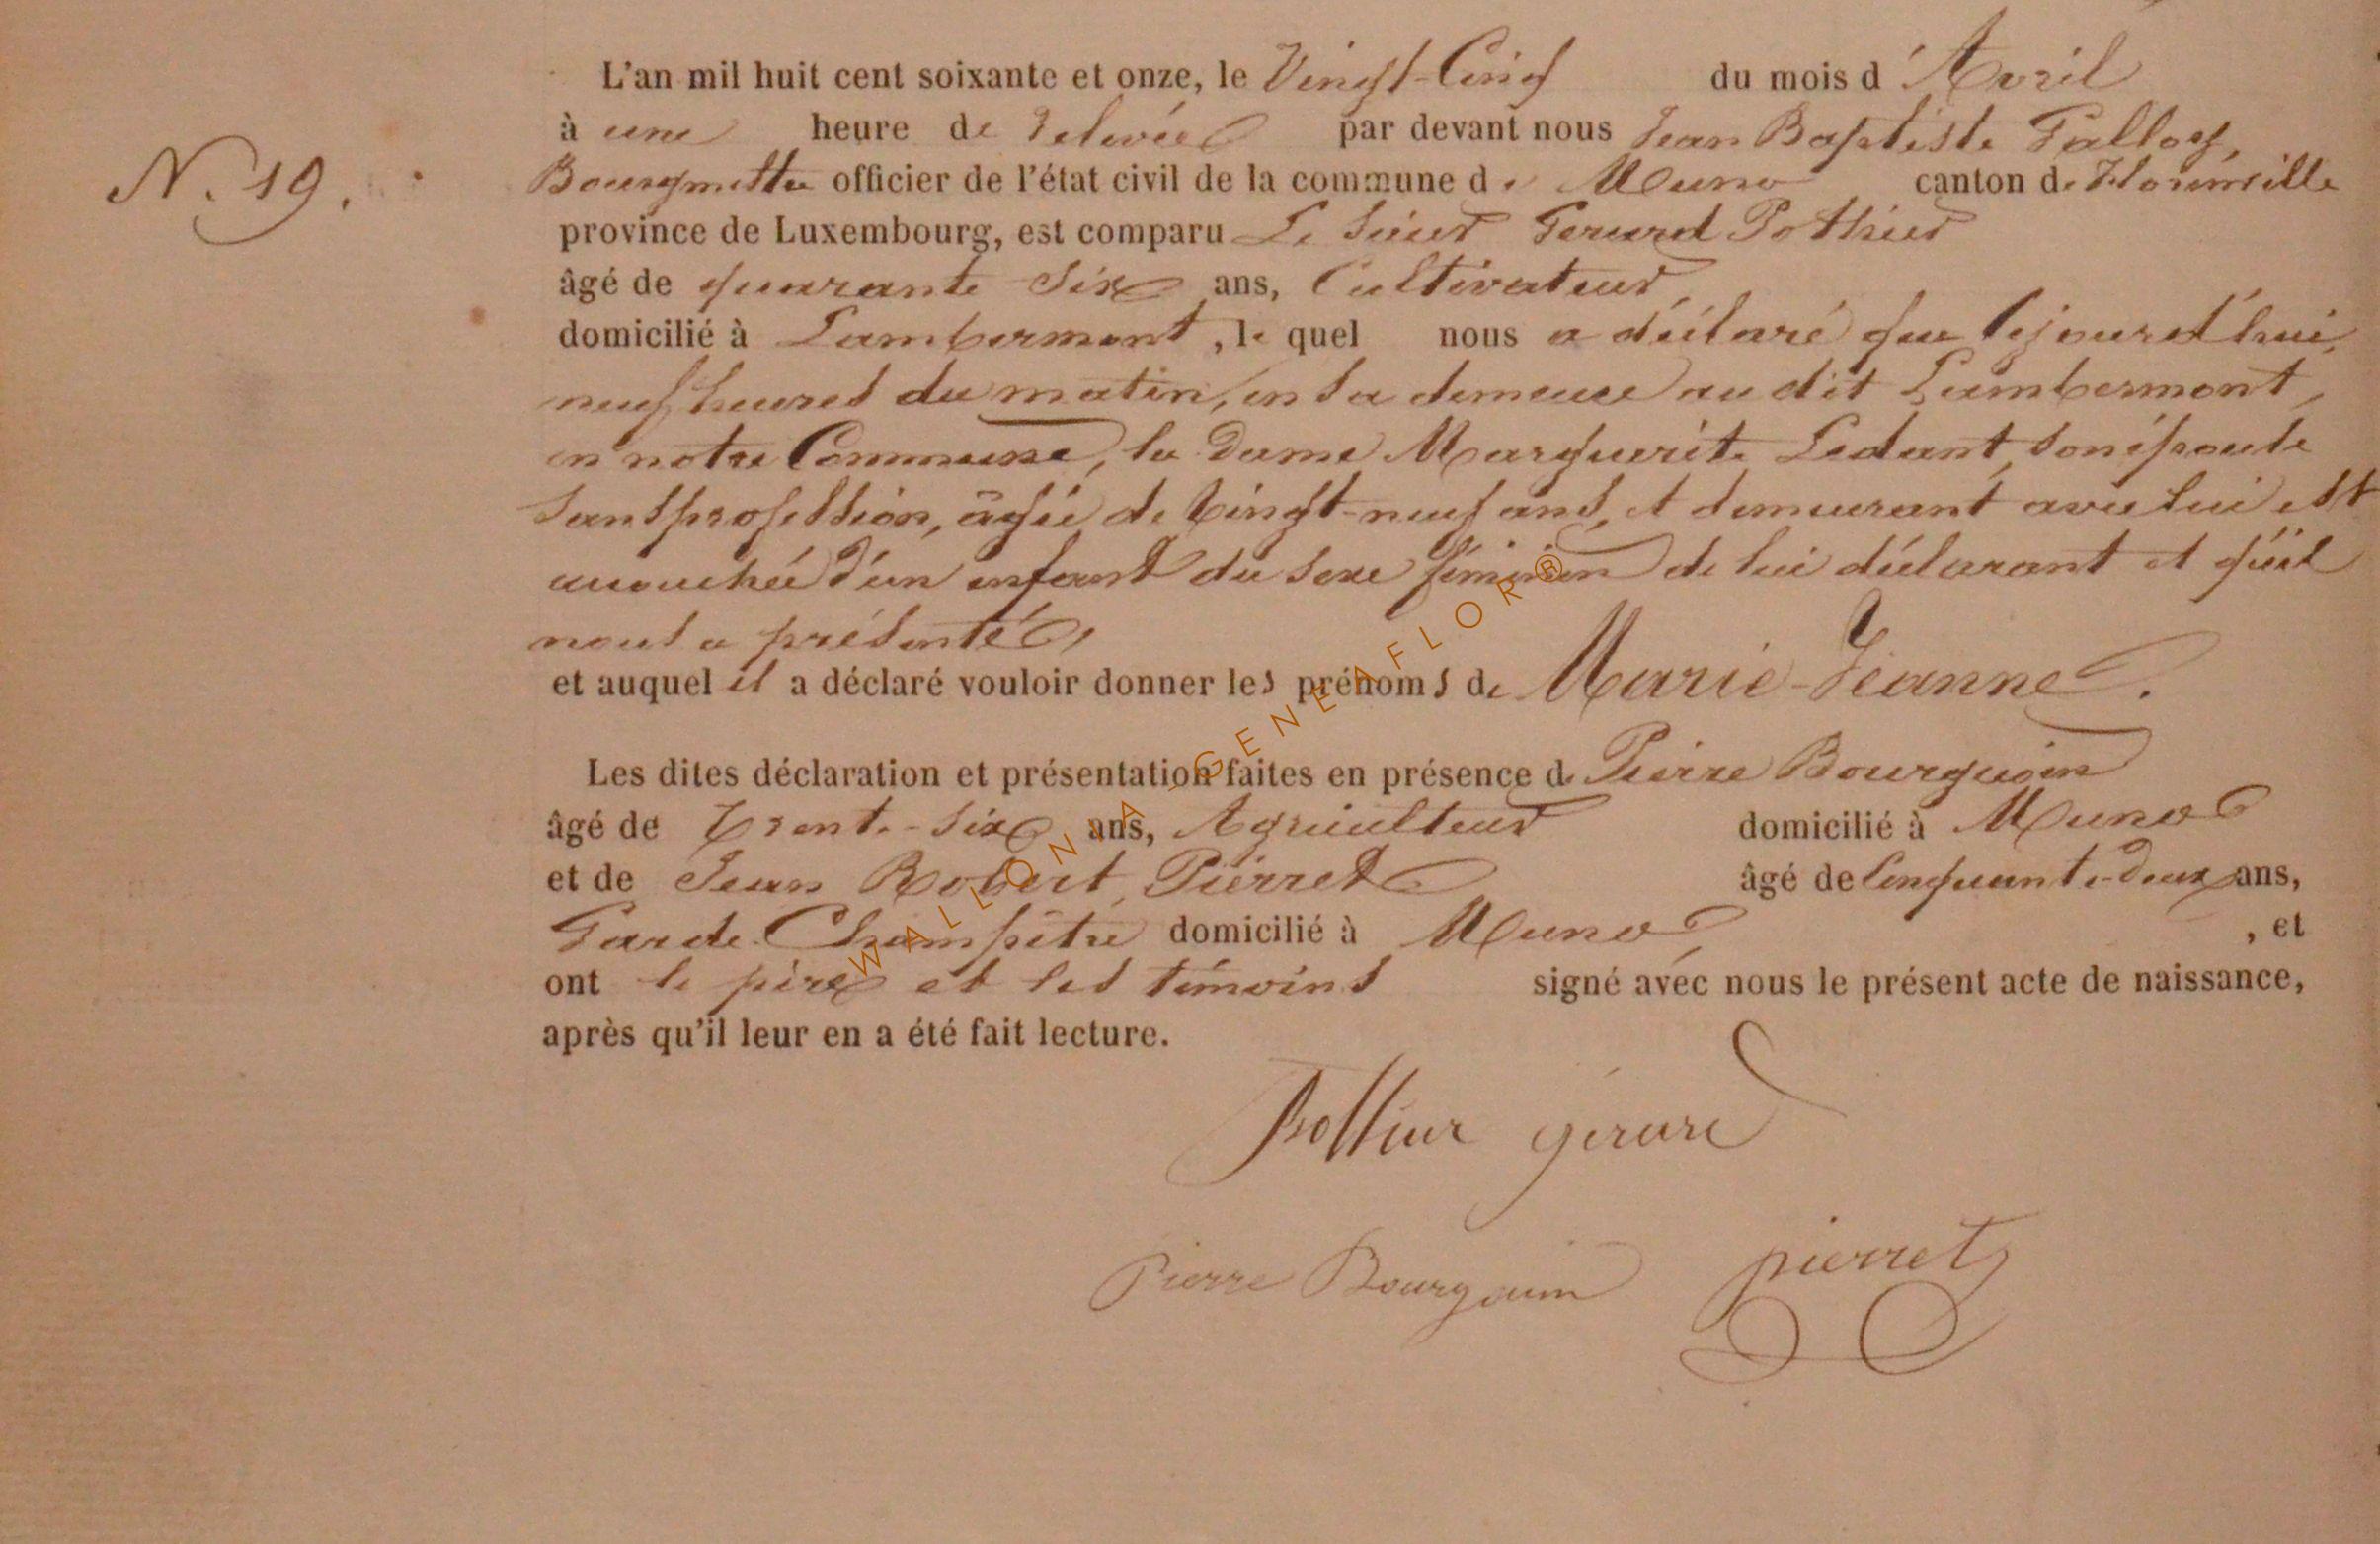 N. 19.
L'an mil huit cent soixante et onze, le Vingt-Cinq du mois d'Avril
à une heure de relevée par devant nous Jean Baptiste
Bourgmestre officier de l'état civil de la commune de Muno canton de Florenville
province de Luxembourg, est comparu Le Sieur Gerard Pothier
âgé de quarante six ans, Cultivateur,
domicilié à Lambermont, le quel nous a déclaré que cejourd'hui,
neuf heures du matin, en sa demeure au dit Lambermont,
en notre Commune, la Dame Marguerite Ledant, son épouse
sans profession, âgée de vingt-neuf ans, et demeurant avec lui est
accouchée d'un enfant du sexe féminin de lui déclarant et qu'il
nous a présenté,
et auquel il a déclaré vouloir donner les prénoms de Marie-Jeanne.
Les dites déclaration et présentation faites en présence de Pierre Bourguoin
âgé de trente-six ans, Agriculteur domicilié à Muno
et de Jean Robert Pierret âgé de Cinquante-deux ans,
Garde Champêtre domicilié à Muno, et
ont le père et les témoins signé avec nous le présent acte de naissance,
après qu'il leur en a été fait lecture.
gérard
Pierre pierret
WALLONIA - GENEAFLOR®